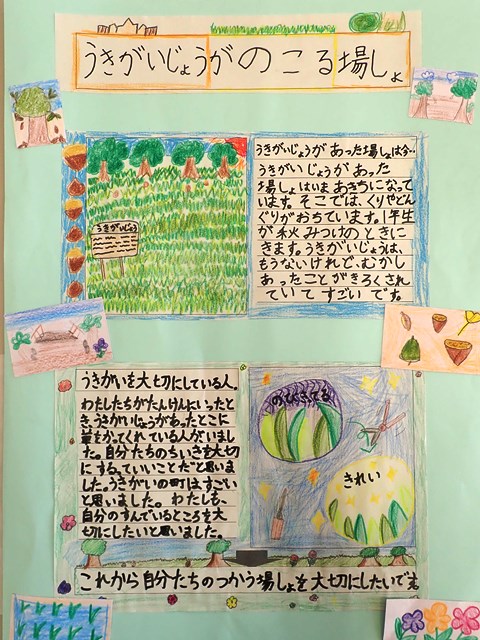 うきがいじょうがのこる場しょ
うきがいじょうがあった場しょは今…
うきがいじょうがあった
場しょはいまあきちになって
います。そこでは、くりやどん
ぐりがおちています。1年生
が秋みつけのときに
きます。うきがいじょうは、
もうないけれど、むかし
あったことがきろくされ
ていてすごいです。
うきがいじょう
うきがいを大切にしている人。
わたしたちがたんけんにいったと
き、うきがいじょうがあったとこに
草をかってくれている人がいまし
た。自分たちのちいきを大切
にする。ていいことだと思いま
した。うきがいの町はすごい
と思いました。わたしも、
自分のすんでいるところを大
切にしたいと思いました。
きれい
これから自分たちのつかう場しょを大切にしたいです